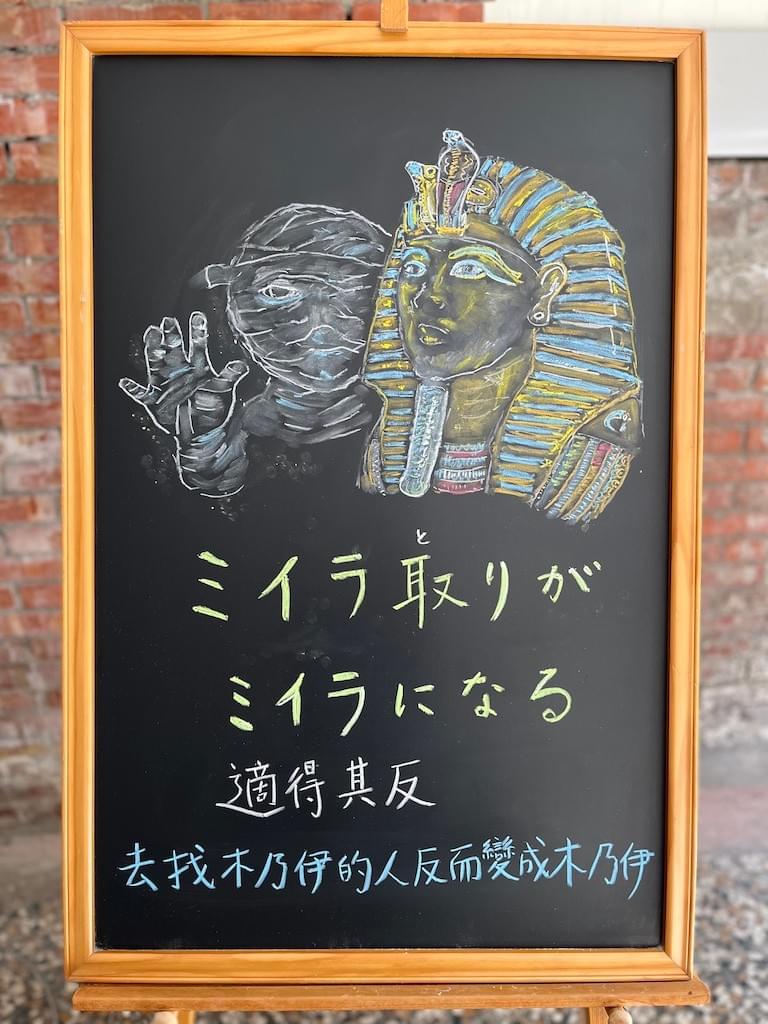 と
ミイラ取りが
ミイラになる
適得其反
去找木乃伊的人反而變成木乃伊